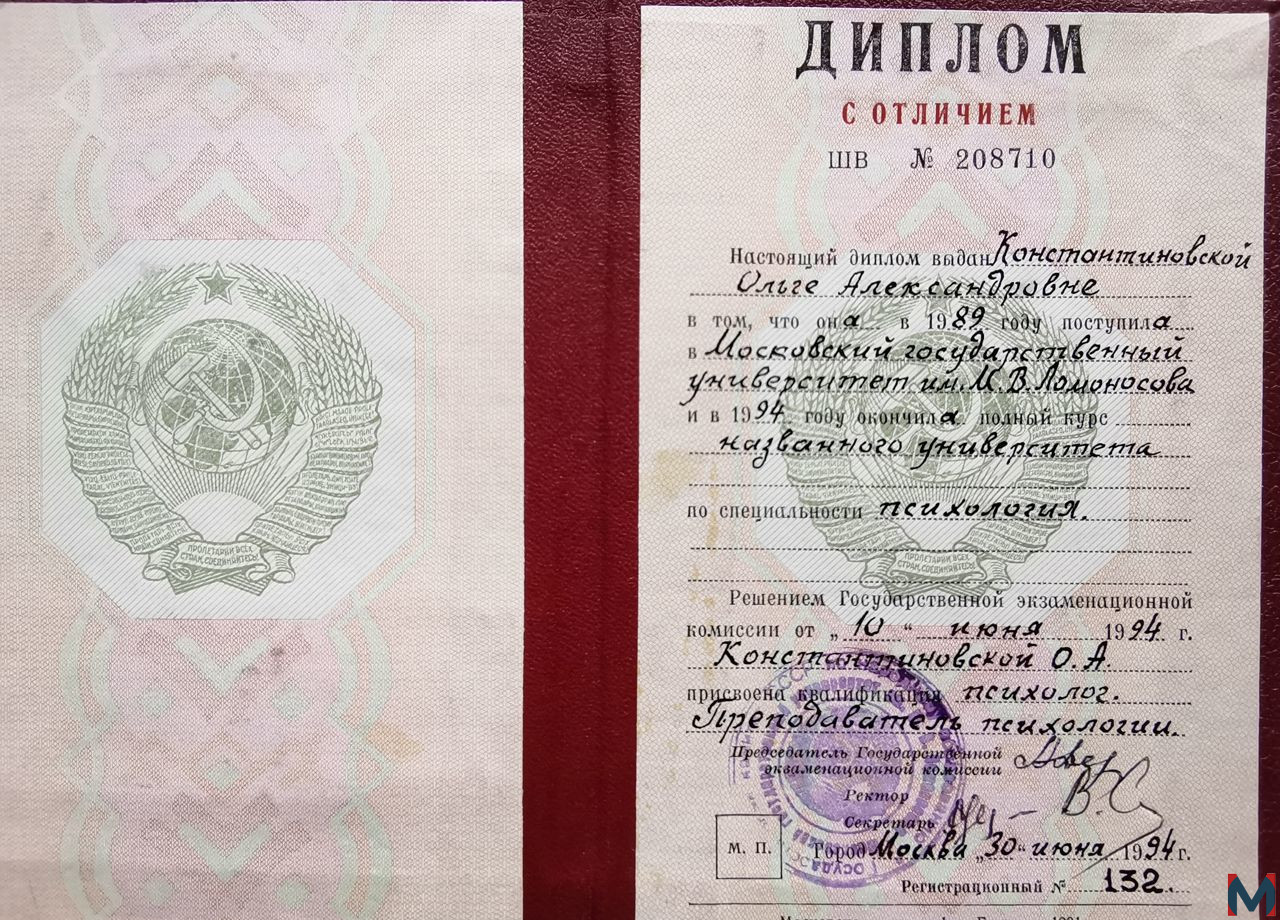 ПРОЛЕТАРИИ ВСЕХ
СТРАН, СОЕДИНЯЙТЕСЬ!
ДИПЛОМ
С ОТЛИЧИЕМ
ШВ № 208710
Настоящий диплом выдан Константиновской
Ольге Александровне
в том, что она в 1989 году поступила
в Московский государственный
университет им. М. В. Ломоносова
и в 1994 году окончила полный курс
названного университета
по специальности психология.
ПРОЛЕТАРИИ ВСЕХ
СТРАН, СОЕДИНЯЙТЕСЬ!
Решением Государственной экзаменационной
комиссии от „10“ июня 1994 г.
Константиновской О. А.
присвоена квалификация психолог.
Преподаватель психологии.
Председатель Государственной
экзаменационной комиссии
Ректор
Секретарь
М. П.
Город Москва „30“ июня 1994 г.
Регистрационный № 132.
M